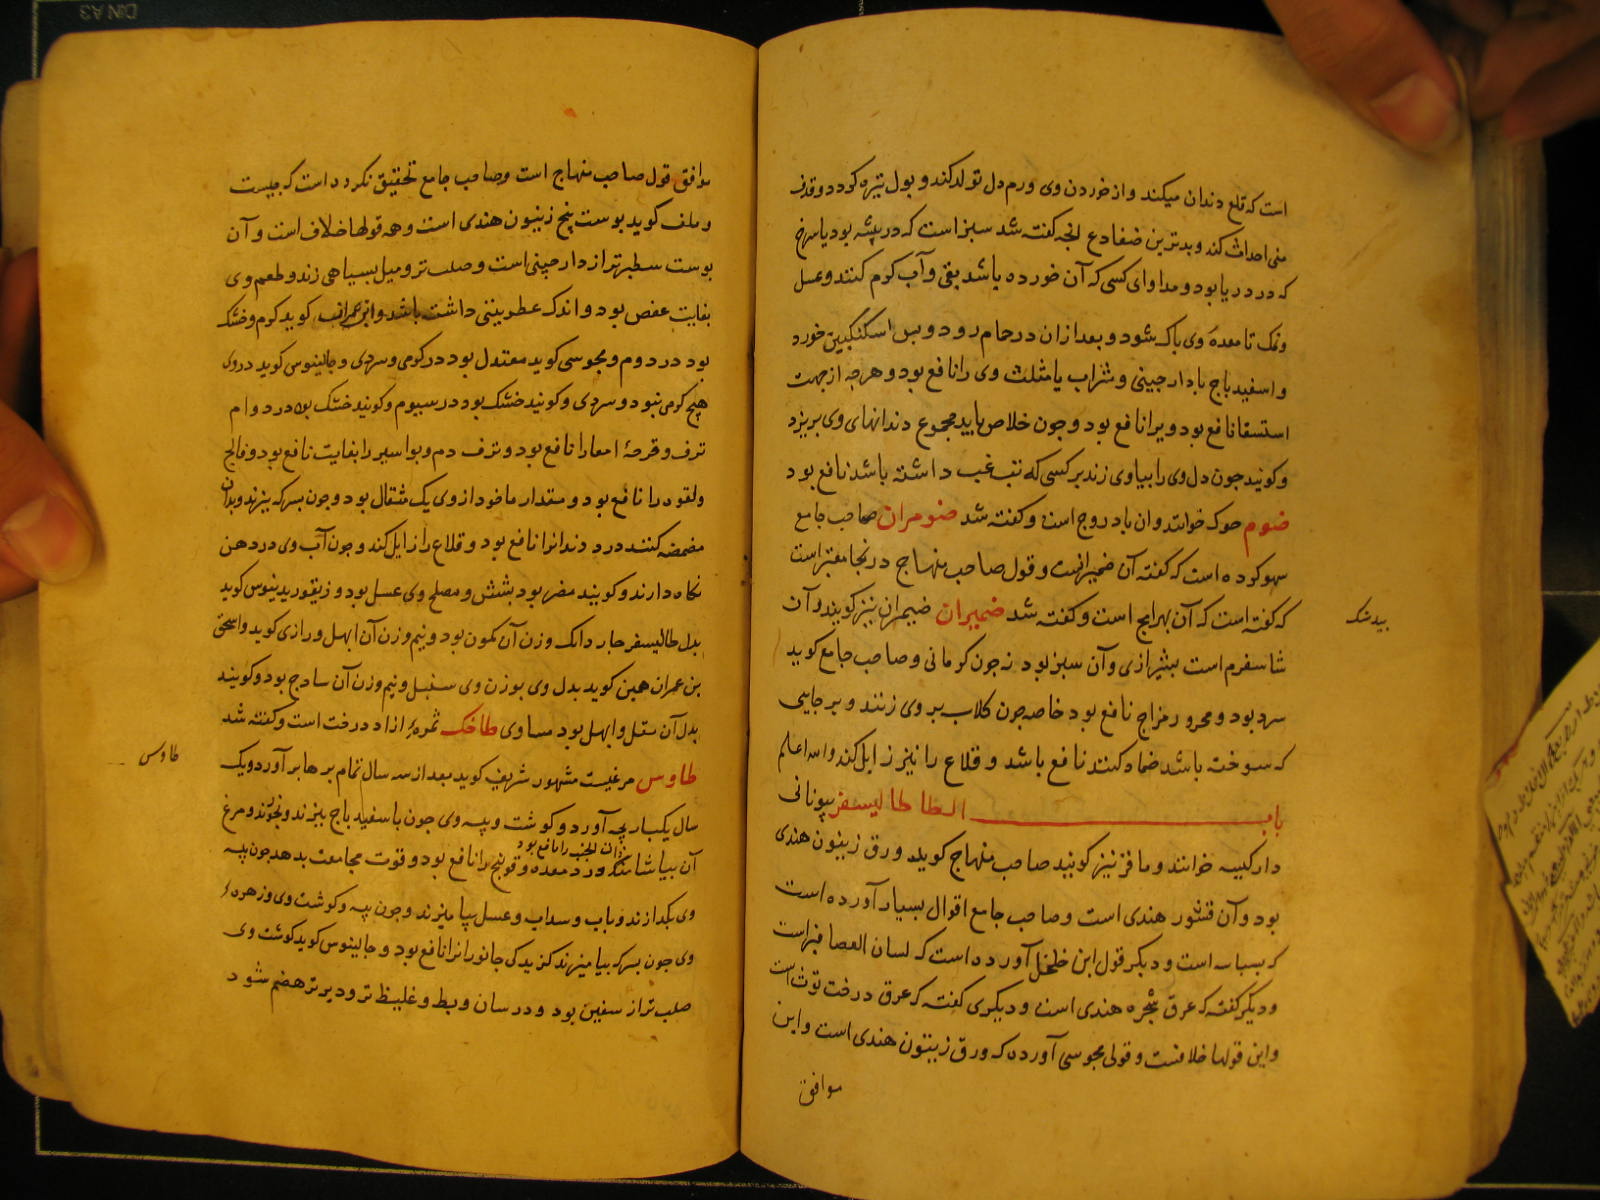 است که قلع دندان میکند و از خوردن وی ورم دل تولد کند و بول تیره کردد و قذف
منی احداث کند و بدترین ضفادع انجه کفته شد سبز است که در بیشه بود یا سرخ
که در دریا بود و مداوای کسی که آن خورده باشد بقی و آب کرم کنند و عسل
و نمک تا معدهٔ وی پاک شود و بعد از ان در حمام رود و بس اسکنکبین خورد
و اسفیدباج با دارجینی و شراب یا مثلث وی را نافع بود و هرجه از جهت
استسقا نافع بود ویرا نافع بود و جون خلاص یابد مجموع دندانهای وی بریزد
و کویند جون دل وی را بیاوی زند بر کسی که تب غب داشته باشد نافع بود
ضوم حوک خوانند و ان بادروج است و کفته شد ضومران صاحب جامع
سهو کرده است که کفته آن ضمیرانست و قول صاحب منهاج درنجا معتبر است
که کفته است که آن بهرامج است و کفته شد ضمیران ضیمران نیز کویند و آن
بیدمشک
شاسفرم است بشیرازی و آن سبز بود نه جون کرمانی و صاحب جامع کوید
سرد بود و محرور مزاج نافع بود خاصه جون کلاب بر وی زنند و بر جایی
که سوخته باشد ضماد کنند نافع باشد و قلاع را نیز زایل کند والله اعلم
باب الطا طالیسفر بیونانی
دارکیسه خوانند و مافر نیز کویند صاحب منهاج کوید ورق زیتون هندی
بود و آن قشور هندی است و صاحب جامع اقوال بسیار آورده است
که بسباسه است و دیکر قول ابن جلجل آورده است که لسان العصافیر است
و دیکر کفته که عرق شجره هندی است و دیکری کفته که عرق درخت توث است
و این قولها خلافست و قولی مجوسی آورده که ورق زیتون هندی است و این
موافق
موافق قول صاحب منهاج است وصاحب جامع تحقیق نکرده است که جیست
و ملف کوید بوست بیخ زیتون هندی است و همه قولها خلاف است و آن
بوست سطبرتر از دارجینی است و صلب تر و میل بسیاهی زند و طعم وی
بغایت عفص بود و اندک عطریتی داشته باشد و ابن عمران کوید کرم و خشک
بود در دوم و مجوسی کوید معتدل بود در کرمی و سردی و جالینوس کوید در وی
هیچ کرمی نبود و سردی و کویند خشک بود در سیوم و کویند خشک بود در دوام
نزف و قرحهٔ امعا را نافع بود و نزف دم و بواسیر را بغایت نافع بود و فالج
و لقوه را نافع بود و مقدار ماخود از وی یک مثقال بود و جون بسرکه بپزند و بدان
مضمضه کنند درد دندانرا نافع بود و قلاع را زایل کند و جون آب وی در دهن
نکاه دارند و کویند مضر بود بشش و مصلح وی عسل بود و دیسقوریدینوس کوید
بدل طالیسفر جار دانک وزن آن کمون بود و نیم وزن آن ابهل و رازی کوید و اسحق
بن عمران همین کوید بدل وی بوزن وی سنبل و نیم وزن آن سادج بود و کویند
بدل آن مقل و ابهل بود مساوی طاخک ثمرهٔ ازاد درخت است و کفته شد
طاوس مرغیست مشهور شریف کوید بعد از سه سال تمام برها بر آورد و یک
طاوس
سال یکبار بجه آورد و کوشت و پیه وی جون با سفیدباج بپزند و بخورند و مرغ
ذات الجنب را نافع بود
آن بیاشامند و درد معده و قولنج را نافع بود و قوت مجامعت بدهد جون پیه
وی بکدازند و باب و سداب و عسل بیامیزند و جون پیه و کوشت وی و زهرهٔ
وی جون بسرکه بیامیزند کزیدکی جانورانرا نافع بود و جالینوس کوید کوشت وی
صلب تر از سفنین بود و ورسان و بط و غلیظ تر و دیرتر هضم شود